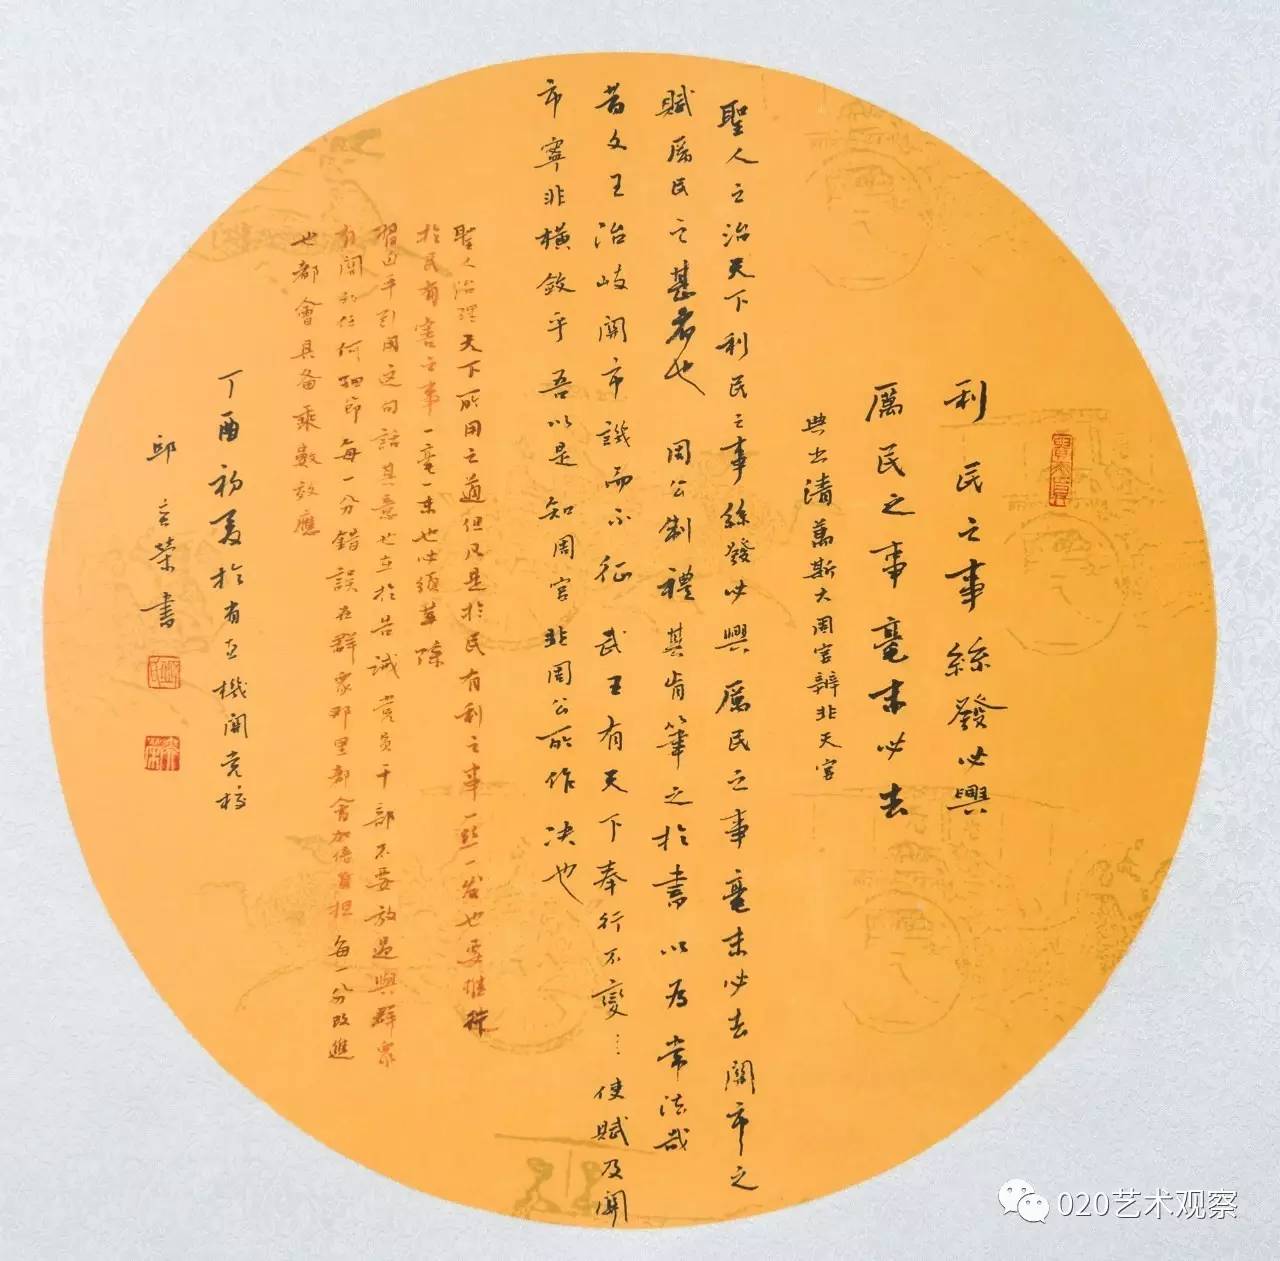 利民之事絲發必興
厲民之事毫末必去
典出清萬斯大周官辨非天官
聖人之治天下利民之事絲發必興厲民之事毫末必去關市之
賦厲民之甚者也 周公制禮其肯筆之於書以為常法哉
昔文王治岐關市譏而不征 武王有天下奉行不變…使賦及關
市寧非橫斂乎 吾以是知周官非周公所作決也
聖人治理天下所用之道但凡是於民有利之事一絲一發也要推行
於民有害之事一毫一末也必須革除
習近平引用這句話其意也在於告誡黨員干部不要放過與群眾
有關的任何細節每一分錯誤在群眾那里都會加倍負担每一分改進
也都會具备乘數效應
丁酉初夏於省直機關党校
邱 榮書
020艺术观察